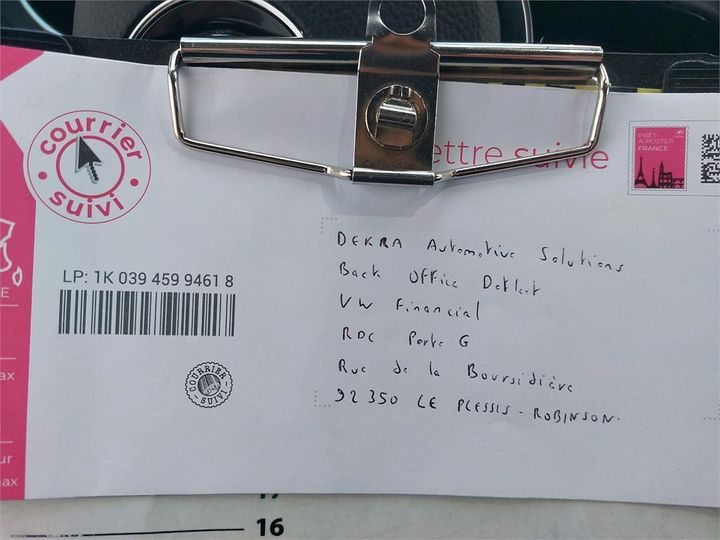 courrier
suivi
ettre suivie
PRÊT-
À-POSTER
FRANCE
LP: 1K 039 459 9461 8
COURRIER
SUIVI
DEKRA Automotive Solutions
Back Office Detlect
VW Financial
RDC Porte G
Rue de la Boursidière
92350 LE PLESSIS-ROBINSON.
E
ax
ur
ax
17
16